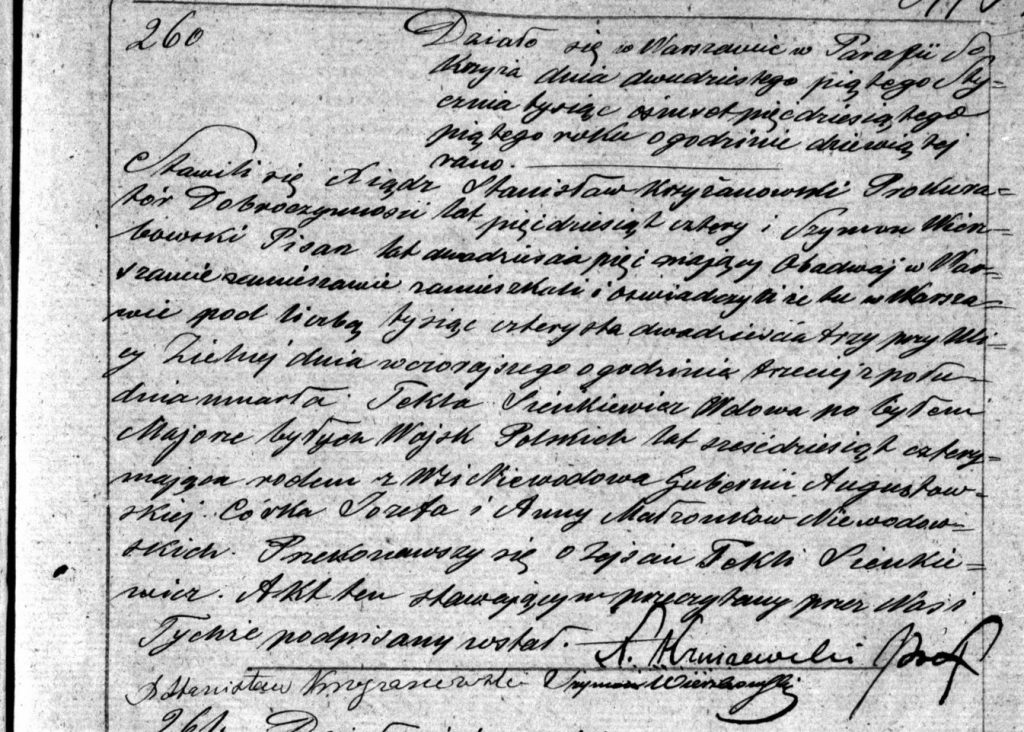 260
Działo się w Warszawie w Parafii Sgo
Krzyża dnia dwudziestego piątego Sty-
cznia tysiąc ośmset pięćdziesiątego
piątego roku o godzinie dziewiątej
rano.
Stawili się Xiądz Stanisław Krzyżanowski Prokura-
tór Dobroczynności lat pięćdziesiąt cztery i Szymon Wierz-
bowski Pisarz lat dwadzieścia pięć mający Obadwaj w War-
szawie zamieszkali i oświadczyli że tu w Warsza-
wie pod liczbą tysiąc czterysta dwadzieścia trzy przy Uli-
cy Zielnej dnia wczorajszego o godzinie trzeciej z połu-
dnia umarła Tekla Sienkiewicz Wdowa po byłem
Majorze byłych Wojsk Polskich lat sześćdziesiąt cztery
mająca rodem z Wsi Niewodowa Gubernii Augustow-
skiej Córka Józefa i Anny Małżonków Niewodow-
skich. Przekonawszy się o zejściu Tekli Sienkie-
wicz. Akt ten stawającym przeczytany przez Nas i
Tychże podpisany został.
X Stanisław Krzyżanowski Szymon Wierzbowski
261. Działo